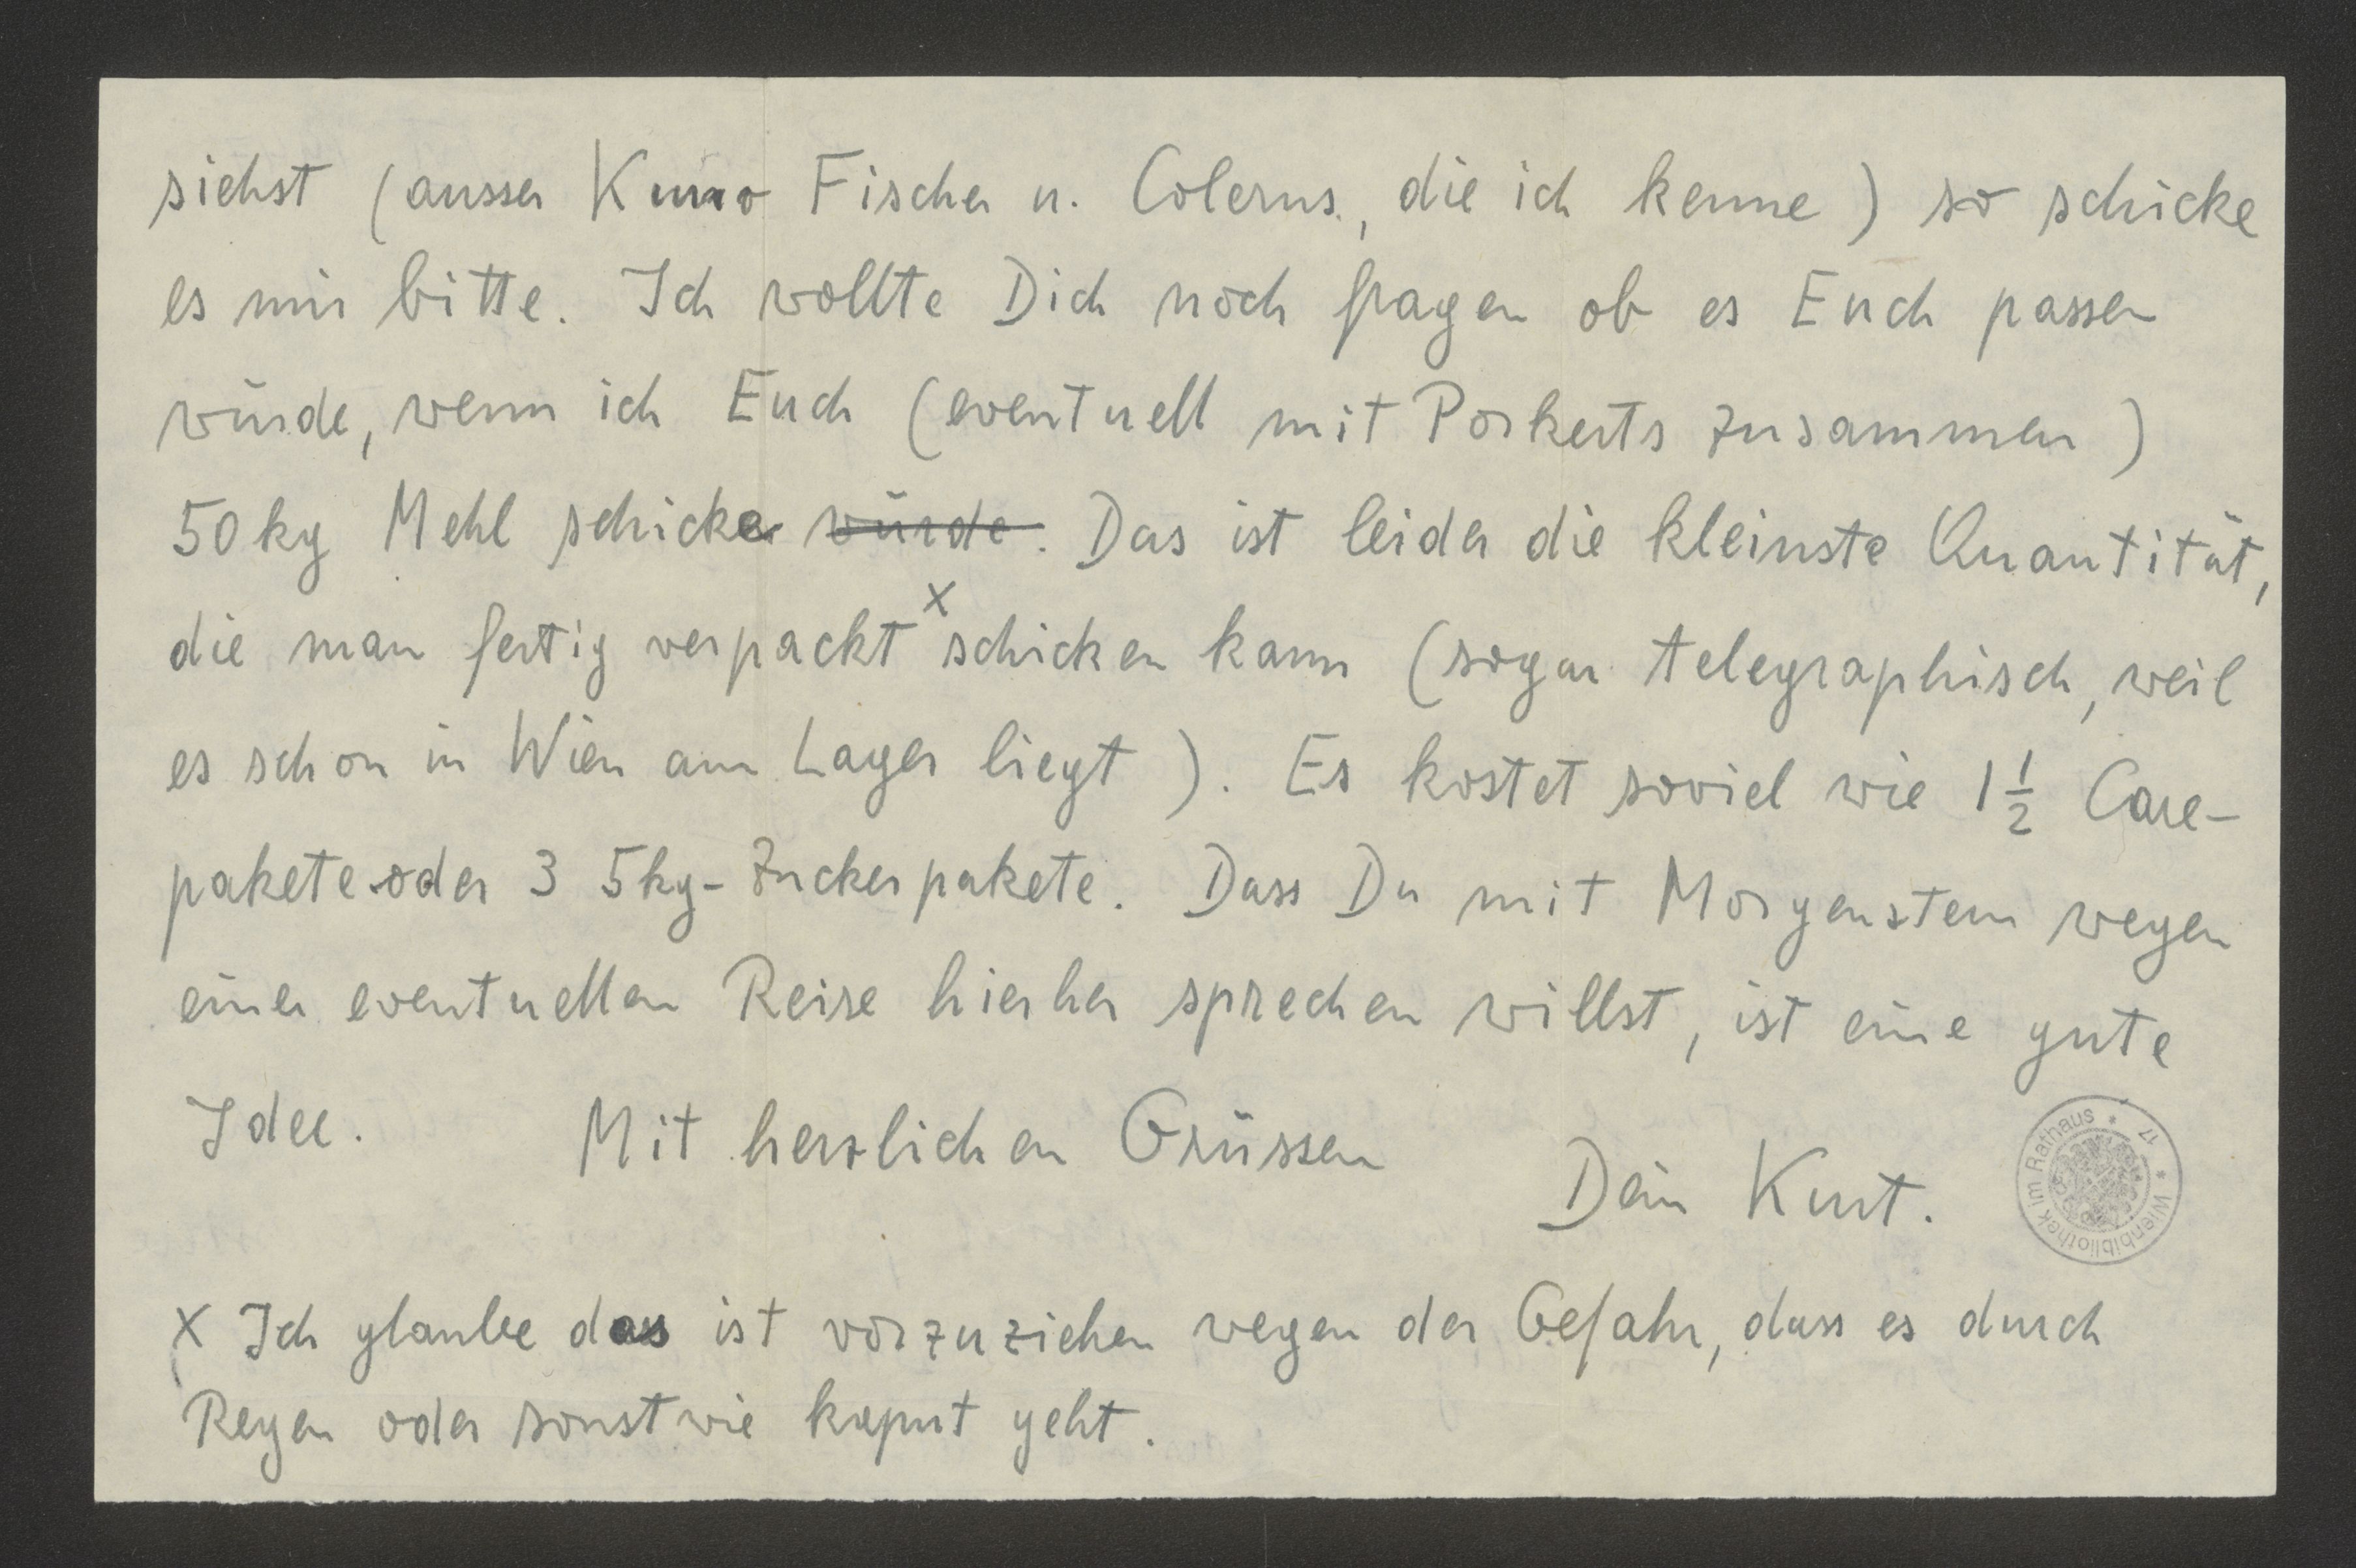 siehst (ausser Kuno Fischer u. Colerus, die ich kenne) so schicke
es mir bitte. Ich wollte Dich noch fragen ob es Euch passen
würde, wenn ich Euch (eventuell mit Porkerts zusammen)
50 kg Mehl schicke würde. Das ist leider die kleinste Quantität,
die man fertig verpackt x schicken kann (sogar telegraphisch, weil
es schon in Wien am Lager liegt). Es kostet soviel wie 1 1/2 Care-
pakete oder 3 5kg-Zuckerpakete. Dass Du mit Morgenstern wegen
einer eventuellen Reise hierher sprechen willst, ist eine gute
Idee. Mit herzlichen Grüssen
Dein Kurt.
Wienbibliothek im Rathaus * 17 *
x Ich glaube das ist vorzuziehen wegen der Gefahr, dass es durch
Regen oder sonstwie kaput geht.